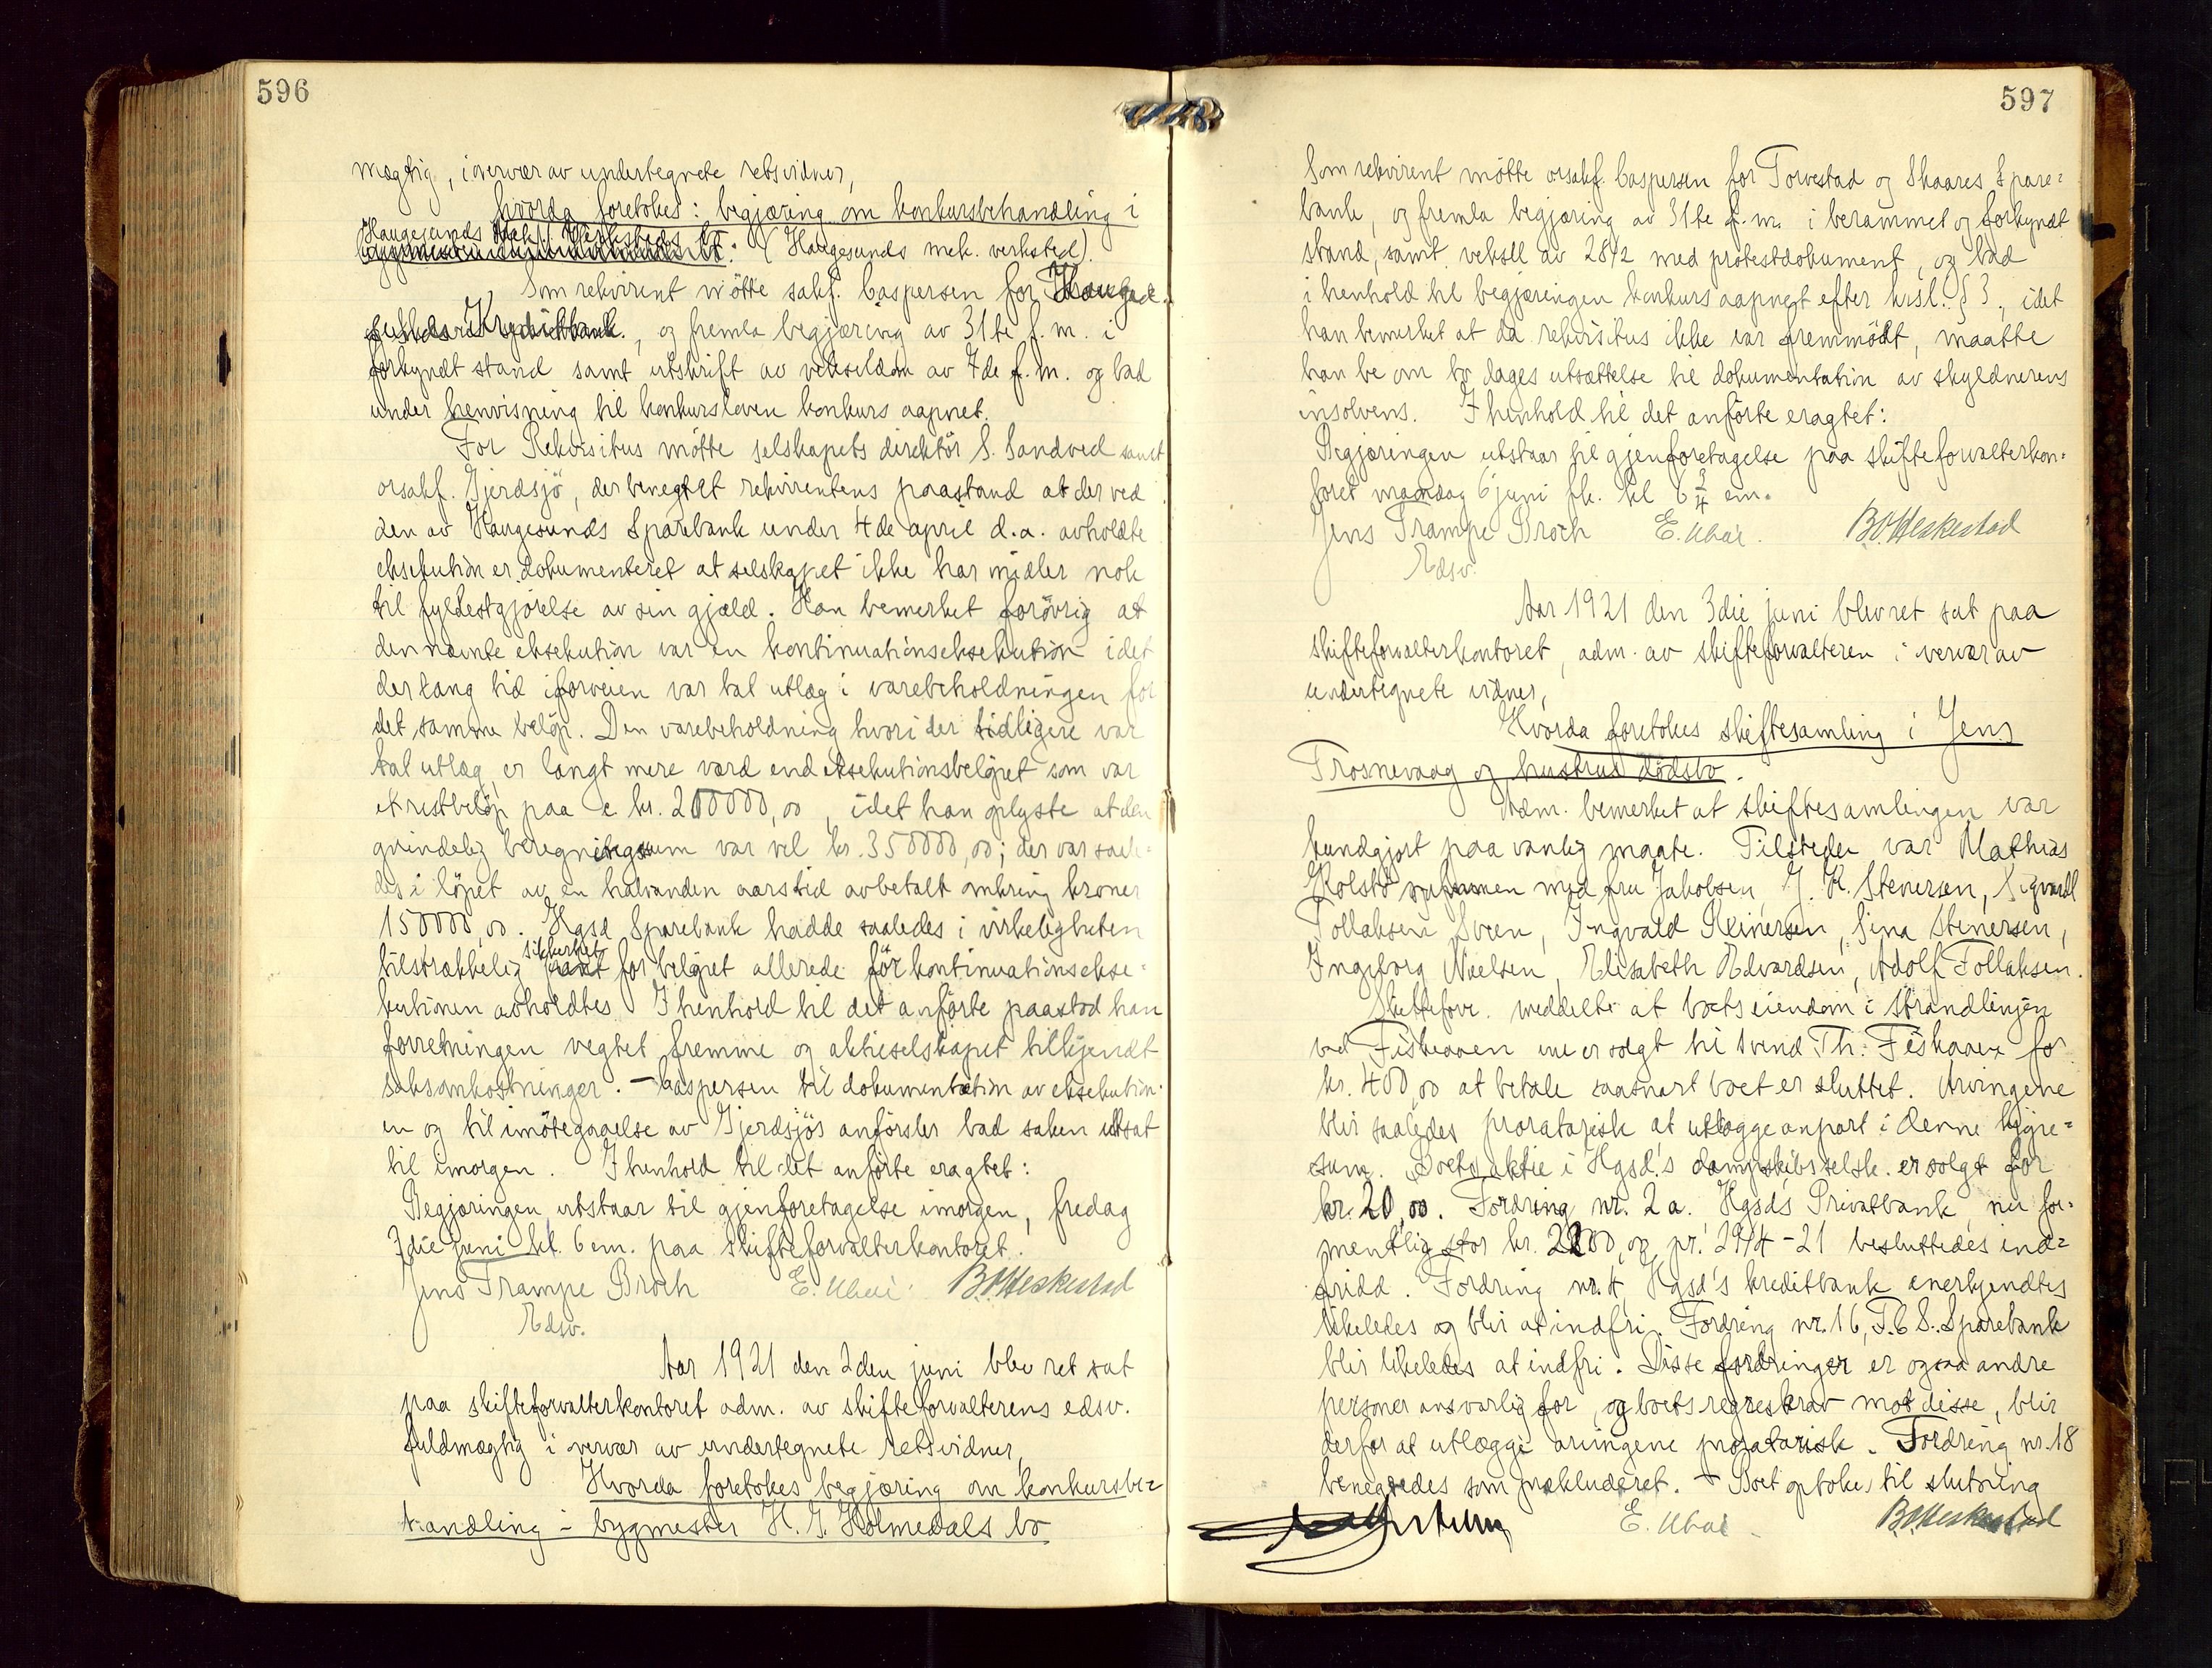 596
mægtig, i overvær av undertegnete retsvidner,
hvorda foretokes: begjæring om konkursbehandling i
Haugesunds Mek. Verksteds bo: (Haugesunds mek. verksted).
Som rekvirent mötte sakf. Caspersen for Hauge
sunds Kreditbank, og fremla begjæring av 31te f. m. i
forkyndt stand samt utskrift av vekseldom av 7de f. m. og bad
under henvisning til konkursloven konkurs aapnet.
For Rekvisitus mötte selskapets direktör S. Sandved samt
orsakf. Gjerdsjö, der benegtet rekvirentens paastand at der ved
den av Haugesunds Sparebank under 4de april d.a. avholdte
eksekution er dokumenteret at selskapet ikke har midler nok
til fyldestgjörelse av sin gjæld. Han bemerket forövrig at
den nævnte eksekution var en kontinuationseksekution idet
der lang tid iforveien var tat utlæg i varebeholdningen for
det samme belöp. Den varebeholdning hvori der tidligere var
tat utlæg, er langt mere værd end eksekutionsbelöpet som var
et restbelöp paa c. kr. 200000,00, idet han oplyste at den
grindelig beregningssum var vel kr. 350000,00; der var saale-
des i löpet av en halvanden aarstid avbetalt omkring kroner
150000,00. Hgsd Sparebank hadde saaledes i virkeligheten
tilstrækkelig sikkerhet for belöpet allerede för kontinuationsekse-
kutionen avholdtes. I henhold til det anförte paastod han
forretningen negtet fremme og aktieselskapet tilkjendt
saksomkostninger. - Caspersen til dokumentation av eksekution-
en og til imötegaaelse av Gjerdsjös anförsler bad saken utsat
til imorgen. I henhold til det anförte eragtet:
Begjæringen utstaar til gjenforetagelse imorgen, fredag
3die juni kl. 6 em. paa skifteforvalterkontoret.
Jens Trampe Broch E. B.O. Heskestad
Edsv.
Aar 1921 den 2den juni blev ret sat
paa skifteforvalterkontoret adm. av skifteforvalterens edsv.
fuldmægtig i overvær av undertegnete retsvidner,
Hvorda foretokes begjæring om konkursbe-
handling i bygmester H. J. Holmedals bo
597
Som rekvirent mötte orsakf. Caspersen for Torvestad og Skaares Spare-
bank, og fremla begjæring av 31te f. m. i berammet og forkyndt
stand, samt veksel av 28/2 med protestdokument, og bad
i henhold til begjæringen konkurs aapnet efter krsl. § 3, idet
han bemerket at da rekvisitus ikke var fremmödt, maatte
han be om to dages utsættelse til dokumentation av skyldnerens
insolvens. I henhold til det anförte eragtet:
Begjæringen utstaar til gjenforetagelse paa skifteforvalterkon-
toret mandag 6 juni kl. 6 3/4 em.
Jens Trampe Broch E. B.O. Heskestad
Edsv.
Aar 1921 den 3die juni blev ret sat paa
skifteforvalterkontoret, adm. av skifteforvalteren i overvær av
undertegnete vidner,
Hvorda foretokes skiftesamling i Jens
Trosnevaag og hustrus dödsbo.
Adm. bemerket at skiftesamlingen var
kundgjort paa vanlig maate. Tilstede var Mathias
Kolstö sammen med fru Jakobsen, J. K. Stenersen, Sigvald
Tollaksen Sveen, Ingvald Reinersen, Sina Stenersen,
Ingeborg Nielsen, Elisabeth Edvardsen, Adolf Tollaksen.
Skifteforv. meddelte at boets eiendom i Strandlinjen
ved Feskaaen nu er solgt til Svend Th. Feskaaen for
kr. 400,00 at betale saasnart boet er sluttet. Arvingene
blir saaledes proratarisk at utlægge anpart i denne kjöpe-
sum. Boets aktie i Hgsd's dampskibsselsk. er solgt for
kr. 20,00. Fordring nr. 2 a. Hgsds Privatbank, nu for-
mentlig stor kr. 2200,00 pr. 29/4-21 besluttedes ind-
fridd. Fordring nr. 4, Hgsd's kreditbank anerkjendtes
likeledes og blir at indfri. Fordring nr. 16, T. & S. Sparebank
blir likeledes at indfri. Disse fordringer er ogsaa andre
personer ansvarlig for, og boets regreskrav mot disse, blir
derfor at utlægge arvingene proratarisk. Fordring nr. 18
benegtedes som prækluderet. - Boet optokes til slutning
E. B.O. Heskestad